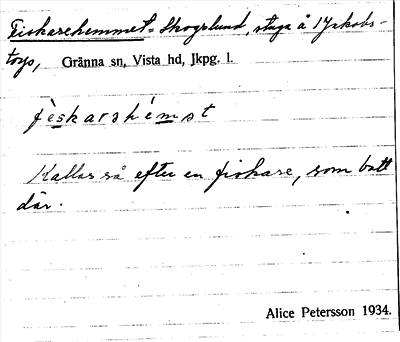 Fiskarehemmet = Skogslund, stuga å 1 Jakobs-
torp, Gränna sn, Vista hd, Jkpg. l.
fèskarshémst
Kallas så efter en fiskare, som bott
där.
Alice Petersson 1934.